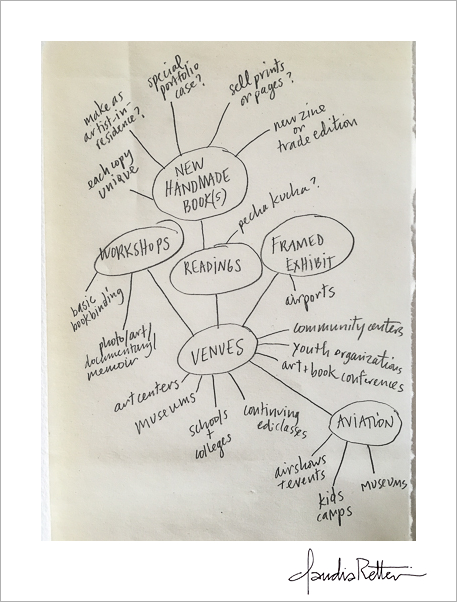 special
portfolio
case?
make as
artist-in-
residence?
sell prints
or pages?
new zine
or
trade edition
each copy
unique
NEW
HANDMADE
BOOK(S)
pecha kucha?
WORKSHOPS
READINGS
FRAMED
EXHIBIT
basic
bookbinding
airports
photo/art/
documentary/
memoir
VENUES
community centers
youth organizations
art + book conferences
art centers
museums
schools
+
colleges
continuing
ed classes
AVIATION
airshows
+ events
kids
camps
museums
Claudia Retter